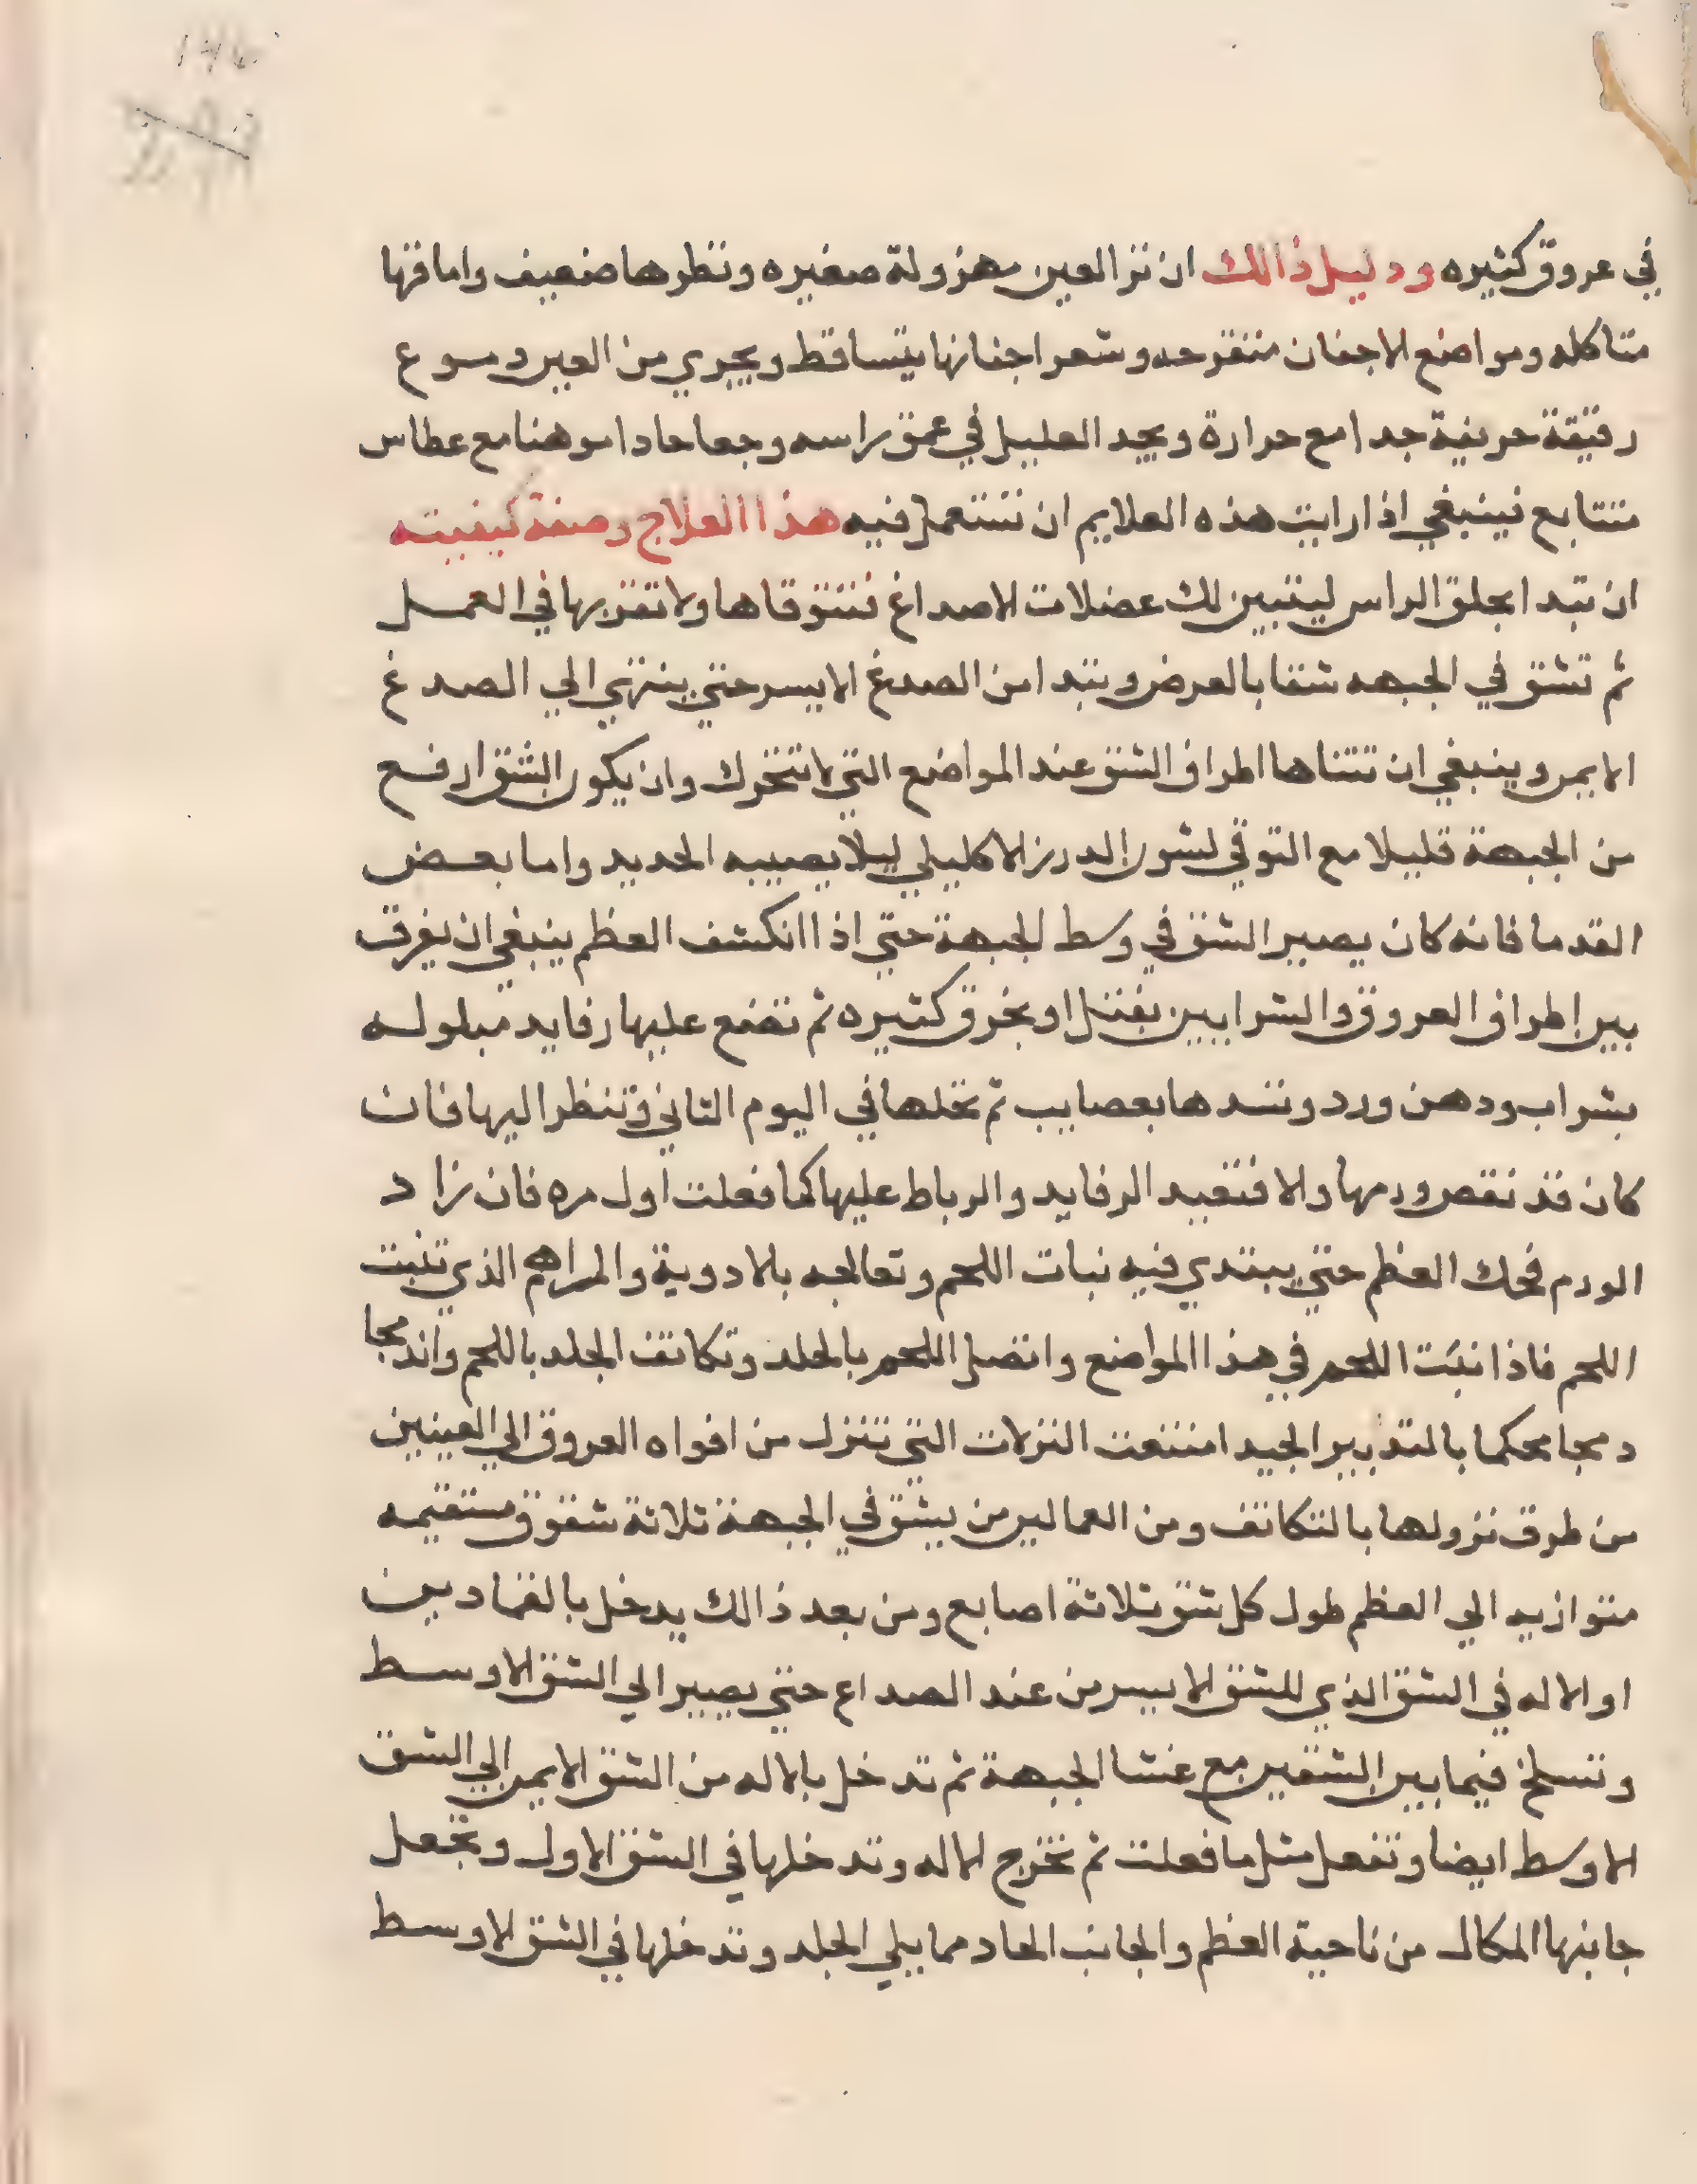 في عروق كثيره ودليل ذالك ان تر العين مهزولة صغيره ونظرها ضعيف واماقها
متاكله ومواضع الاجفان متقرحه وشعر اجفانها يتساقط ويجري من العين دموع
رقيقة حريفية جدا مع حرارة ويجد العليل في عمق راسه وجعا حادا موهنا مع عطاس
متتابع فينبغي اذا رايت هذه العلايم ان تستعمل فيه هذا العلاج وصفة كيفيته
ان تبدا بحلق الراس ليتبين لك عضلات الاصداغ فتتوقاها ولا تقربها في العمل
ثم تشق في الجبهه شقا بالعرض وتبتدا من الصدغ الايسر حتي ينتهي الي الصدغ
الايمن وينبغي ان تتناها اطراف الشق عند المواضع التي لا تتحرك وان يكون الشق ارفع
من الجبهة قليلا مع التوقي لشون الدرز الاكليلي ليلا يصيبه الحديد واما بعض
القدما فانه كان يصير الشق في وسط الجبهة حتي اذا انكشف العظم ينبغي ان يفرق
بين اطراف العروق والشرايين بفتل او بخرق كثيره ثم تضع عليها رفايد مبلوله
بشراب ودهن ورد وتشدها بعصايب ثم تحلها في اليوم الثاني وتنظر اليها فان
كان قد نقص ورمها والا فتقيد الرفايد والرباط عليها كما فعلت اول مره فان زاد
الورم فحك العظم حتي يبتدي فيه نبات اللحم وتعالجه بالادوية والمراهم الذي تنبت
اللحم فاذا نبت اللحم في هذا المواضع واتصل اللحم بالجلد وتكاثف الجلد باللحم واندمجا
دمجا محكما بالتدبير الجيد امتنعت النزلات التي تنزل من افواه العروق الي العينين
من طرق نزولها بالتكاثف ومن العمالين من يشق في الجبهة ثلاثة شقوق مستقيمه
متوازيه الي العظم طول كل شق ثلاثة اصابع ومن بعد ذالك يدخل بالقمادين
او الاله في الشق الذي للشق الايسر من عند الصداع حتي يصير الي الشق الاوسط
وتسلخ فيما بين الشقين مع غشا الجبهة ثم تدخل بالاله من الشق الايمن الي الشق
الاوسط ايضا وتفعل مثل ما فعلت ثم تخرج الاله وتدخلها في الشق الاول وتجعل
جانبها المكال من ناحية العظم والجانب الحاد مما يلي الجلد وتدخلها في الشق الاوسط